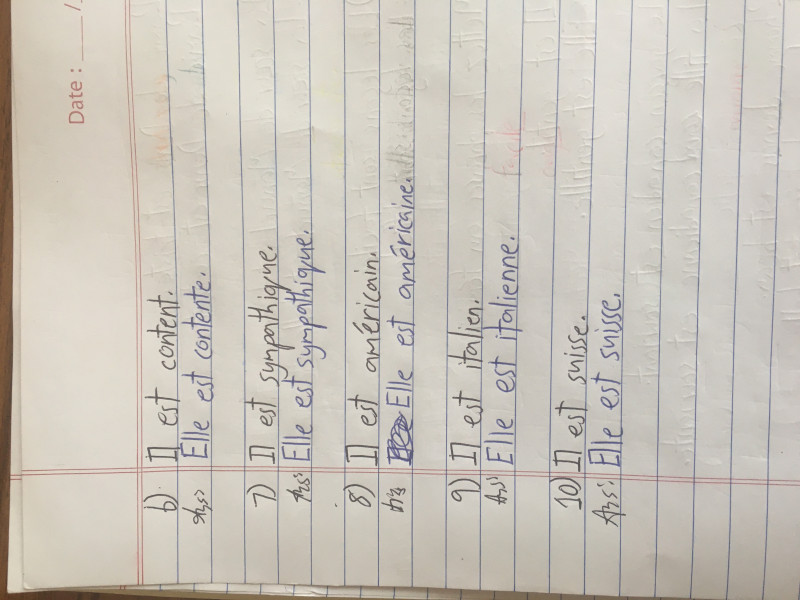 Date : ___/
6) Il est content.
Ans: Elle est contente.
7) Il est sympathique.
Ans: Elle est sympathique.
8) Il est américain.
Ans Elle est américaine.
9) Il est italien.
Ans: Elle est italienne.
10) Il est suisse.
Ans: Elle est suisse.